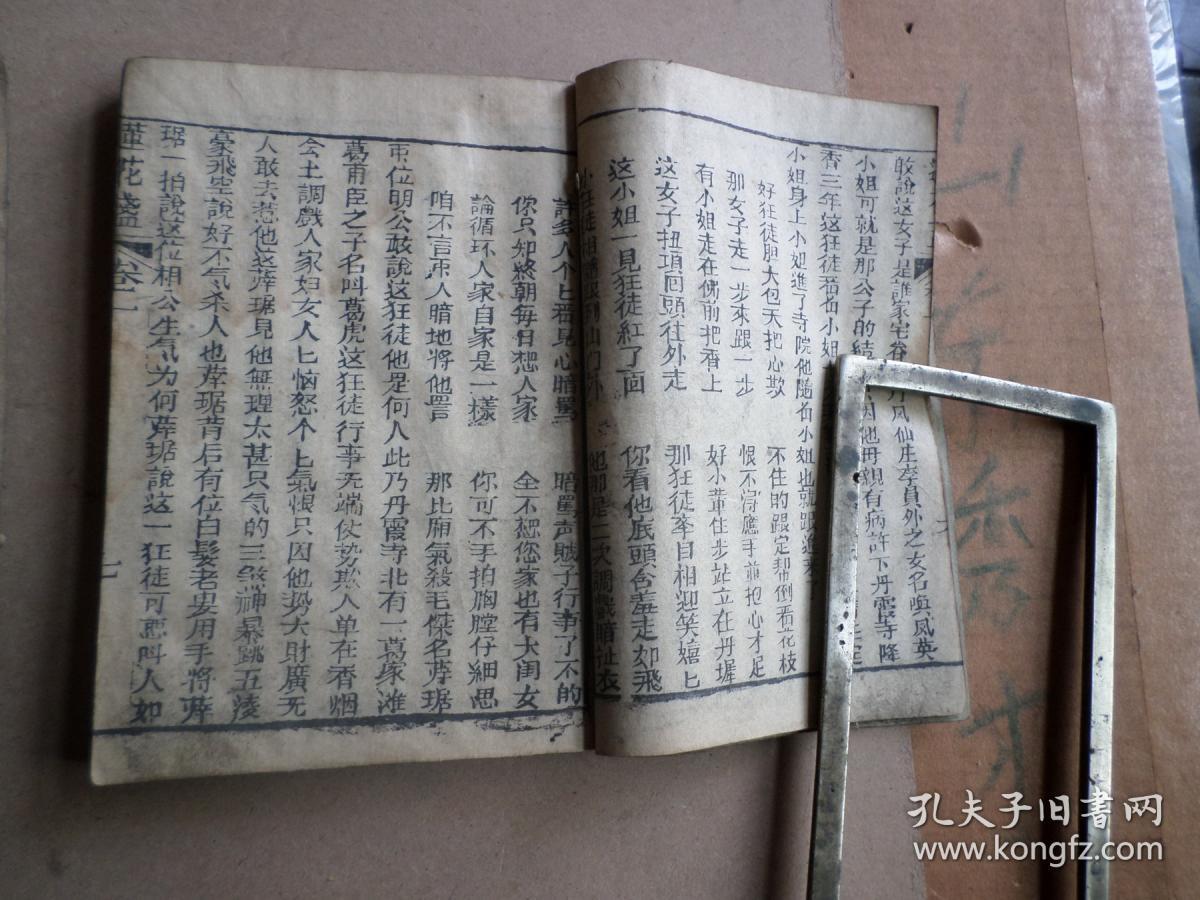 敢說这女子是誰家宅眷丹风仙庄李員外之女名喚凤英
小姐可就是那公子的結 因他母親有病許下丹霞寺降
香三年这狂徒 小姐
小姐身上小姐進了寺院他隨 小姐也就跟進
好狂徒胆大包天把心欺 不住的跟定帮倒看花枝
那女子走一步來跟一步 恨不淂應手並抱心才足
有小姐走在佛前把香上 好小輩住步站立在丹墀
这女子扭項囘頭往外走 那狂徒牽目相迎笑嬉匕
这小姐一見狂徒紅了面 你看他底頭含羞走如飛
小狂徒相 跟到山门外 他那是二次調戲暗扯衣
許多人个匕看見心暗罵 暗罵声賊子行事了不的
你只知終朝每日想人家 全不想您家也有大闺女
論循环人家自家是一樣 你可不手拍胸膛仔細思
咱不言 人暗地將他罵 那比廂氣殺毛傑名 琚
位明公敢說这狂徒他是何人此乃丹霞寺北有一葛家滩
葛甫臣之子名叫葛虎这狂徒行事无端仗势欺人单在香烟
会上調戲人家妇女人匕恼怒个上氣恨只因他势大財廣无
人敢去惹他这 琚見他無理太甚只气的三煞神暴跳五淩
豪飛空說好不气杀人也 琚背后有位白髮老 用手將
琚一拍說这位相公生气为何 琚說这一狂徒可惡叫人如
蓮花盞 卷一 七
山
孔夫子旧书网
www.kongfz.com